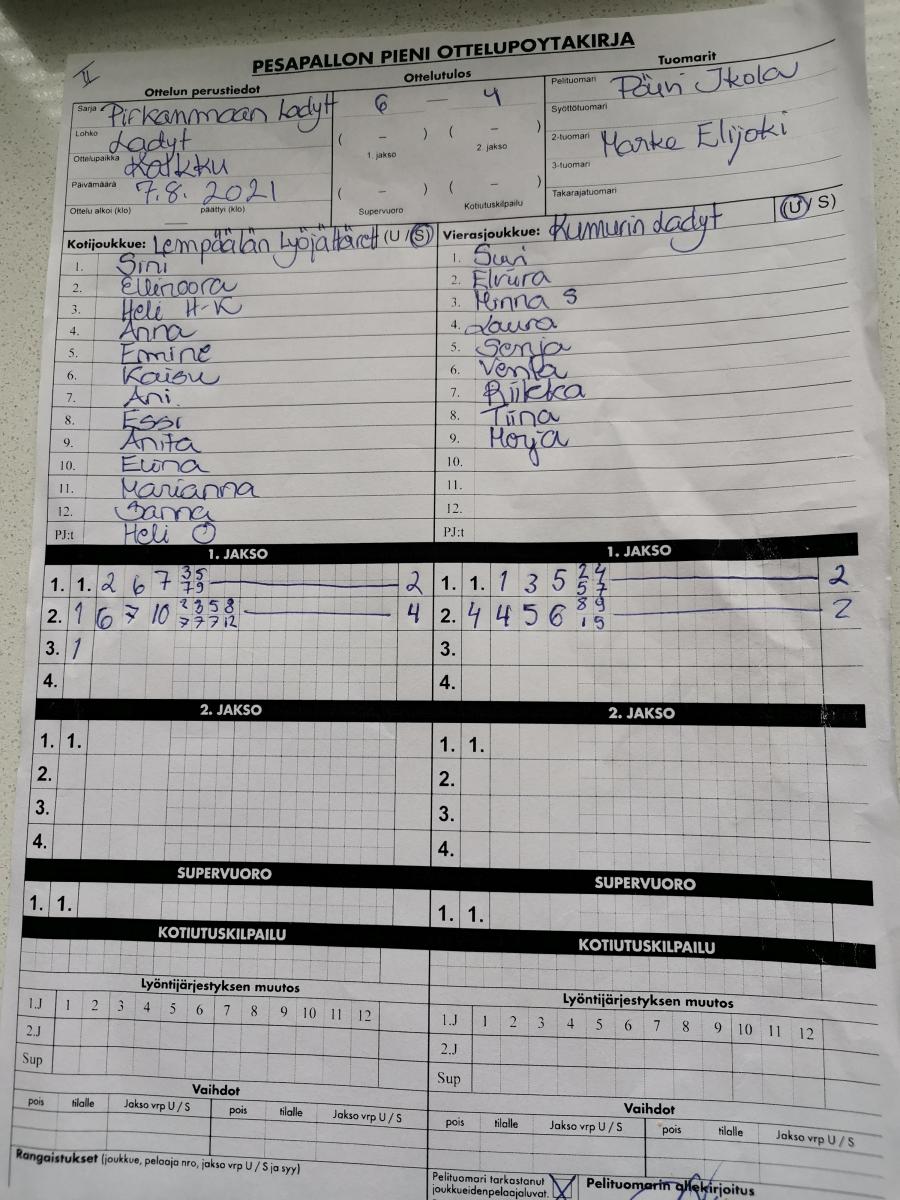 II
PESAPALLON PIENI OTTELUPOYTAKIRJA
Ottelun perustiedot
Ottelutulos
Tuomarit
Sarja Pirkanmaan Ladyt
Lohko Ladyt
Ottelupaikka Kalkku
Päivämäärä 7.8. 2021
Ottelu alkoi (klo) — päättyi (klo)
6 — 4
( – ) ( – )
1. jakso 2. jakso
( – ) ( – )
Supervuoro Kotiutuskilpailu
Pelituomari Päivi Ikola
Syöttötuomari
2-tuomari Marke Elijoki
3-tuomari
Takarajatuomari
Kotijoukkue: Lempäälän Lyöjättäret (U / S)
1. Sini
2. Ellinoora
3. Heli H-K
4. Anna
5. Emine
6. Kaisu
7. Ani
8. Essi
9. Anita
10. Elina
11. Marianna
12. Sanna
PJ:t Heli O
Vierasjoukkue: Kumurin Ladyt (U / S)
1. Suvi
2. Elviira
3. Minna S
4. Laura
5. Senja
6. Venla
7. Riikka
8. Tiina
9. Morja
10.
11.
12.
PJ:t
1. JAKSO
1. 1. 2 6 7 3 5 2
7 9
2. 1 6 7 10 2 3 5 8 4
7 7 7 12
3. 1
4.
1. JAKSO
1. 1. 1 3 5 2 4 2
5 7
2. 4 4 5 6 8 9 2
1 9
3.
4.
2. JAKSO
1. 1.
2.
3.
4.
2. JAKSO
1. 1.
2.
3.
4.
SUPERVUORO
1. 1.
SUPERVUORO
1. 1.
KOTIUTUSKILPAILU
KOTIUTUSKILPAILU
Lyöntijärjestyksen muutos
1.J 1 2 3 4 5 6 7 8 9 10 11 12
2.J
Sup
Lyöntijärjestyksen muutos
1.J 1 2 3 4 5 6 7 8 9 10 11 12
2.J
Sup
Vaihdot
pois tilalle Jakso vrp U / S pois tilalle Jakso vrp U / S
Vaihdot
pois tilalle Jakso vrp U / S pois tilalle Jakso vrp U / S
Rangaistukset (joukkue, pelaaja nro, jakso vrp U / S ja syy)
Pelituomari tarkastanut
joukkueidenpelaajaluvat. X
Pelituomarin allekirjoitus